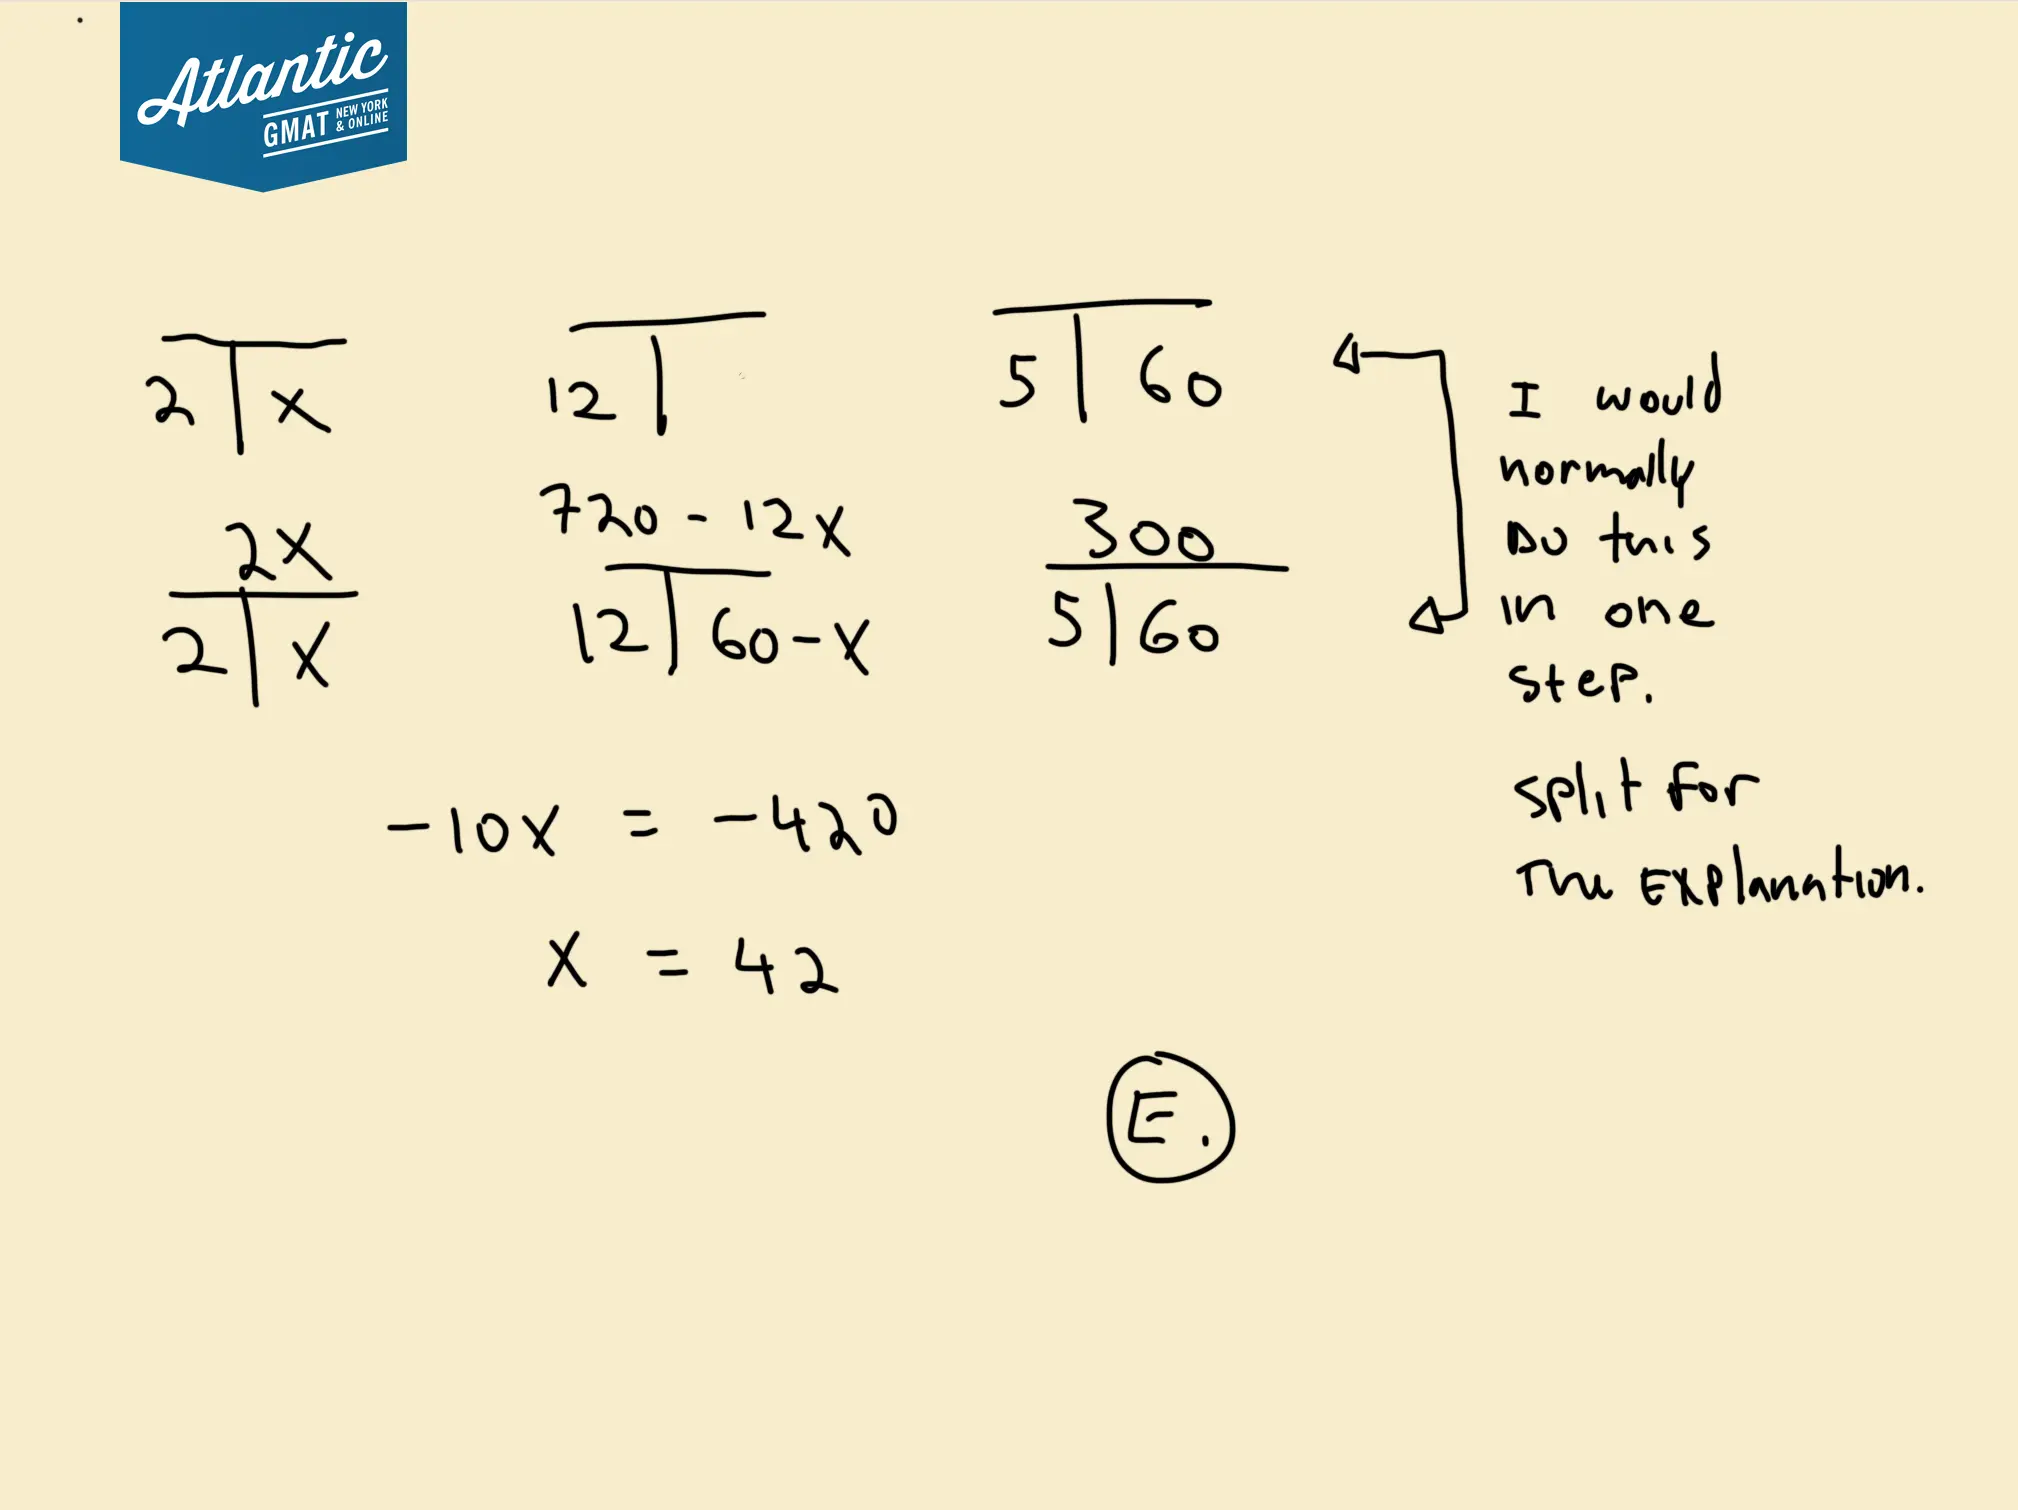 Atlantic
GMAT NEW YORK & ONLINE
2 | x
12 |
5 | 60
2x
2 | x
720 - 12x
12 | 60 - x
300
5 | 60
-10x = -420
x = 42
E.
I would
normally
Do this
in one
step.
split for
The Explanation.